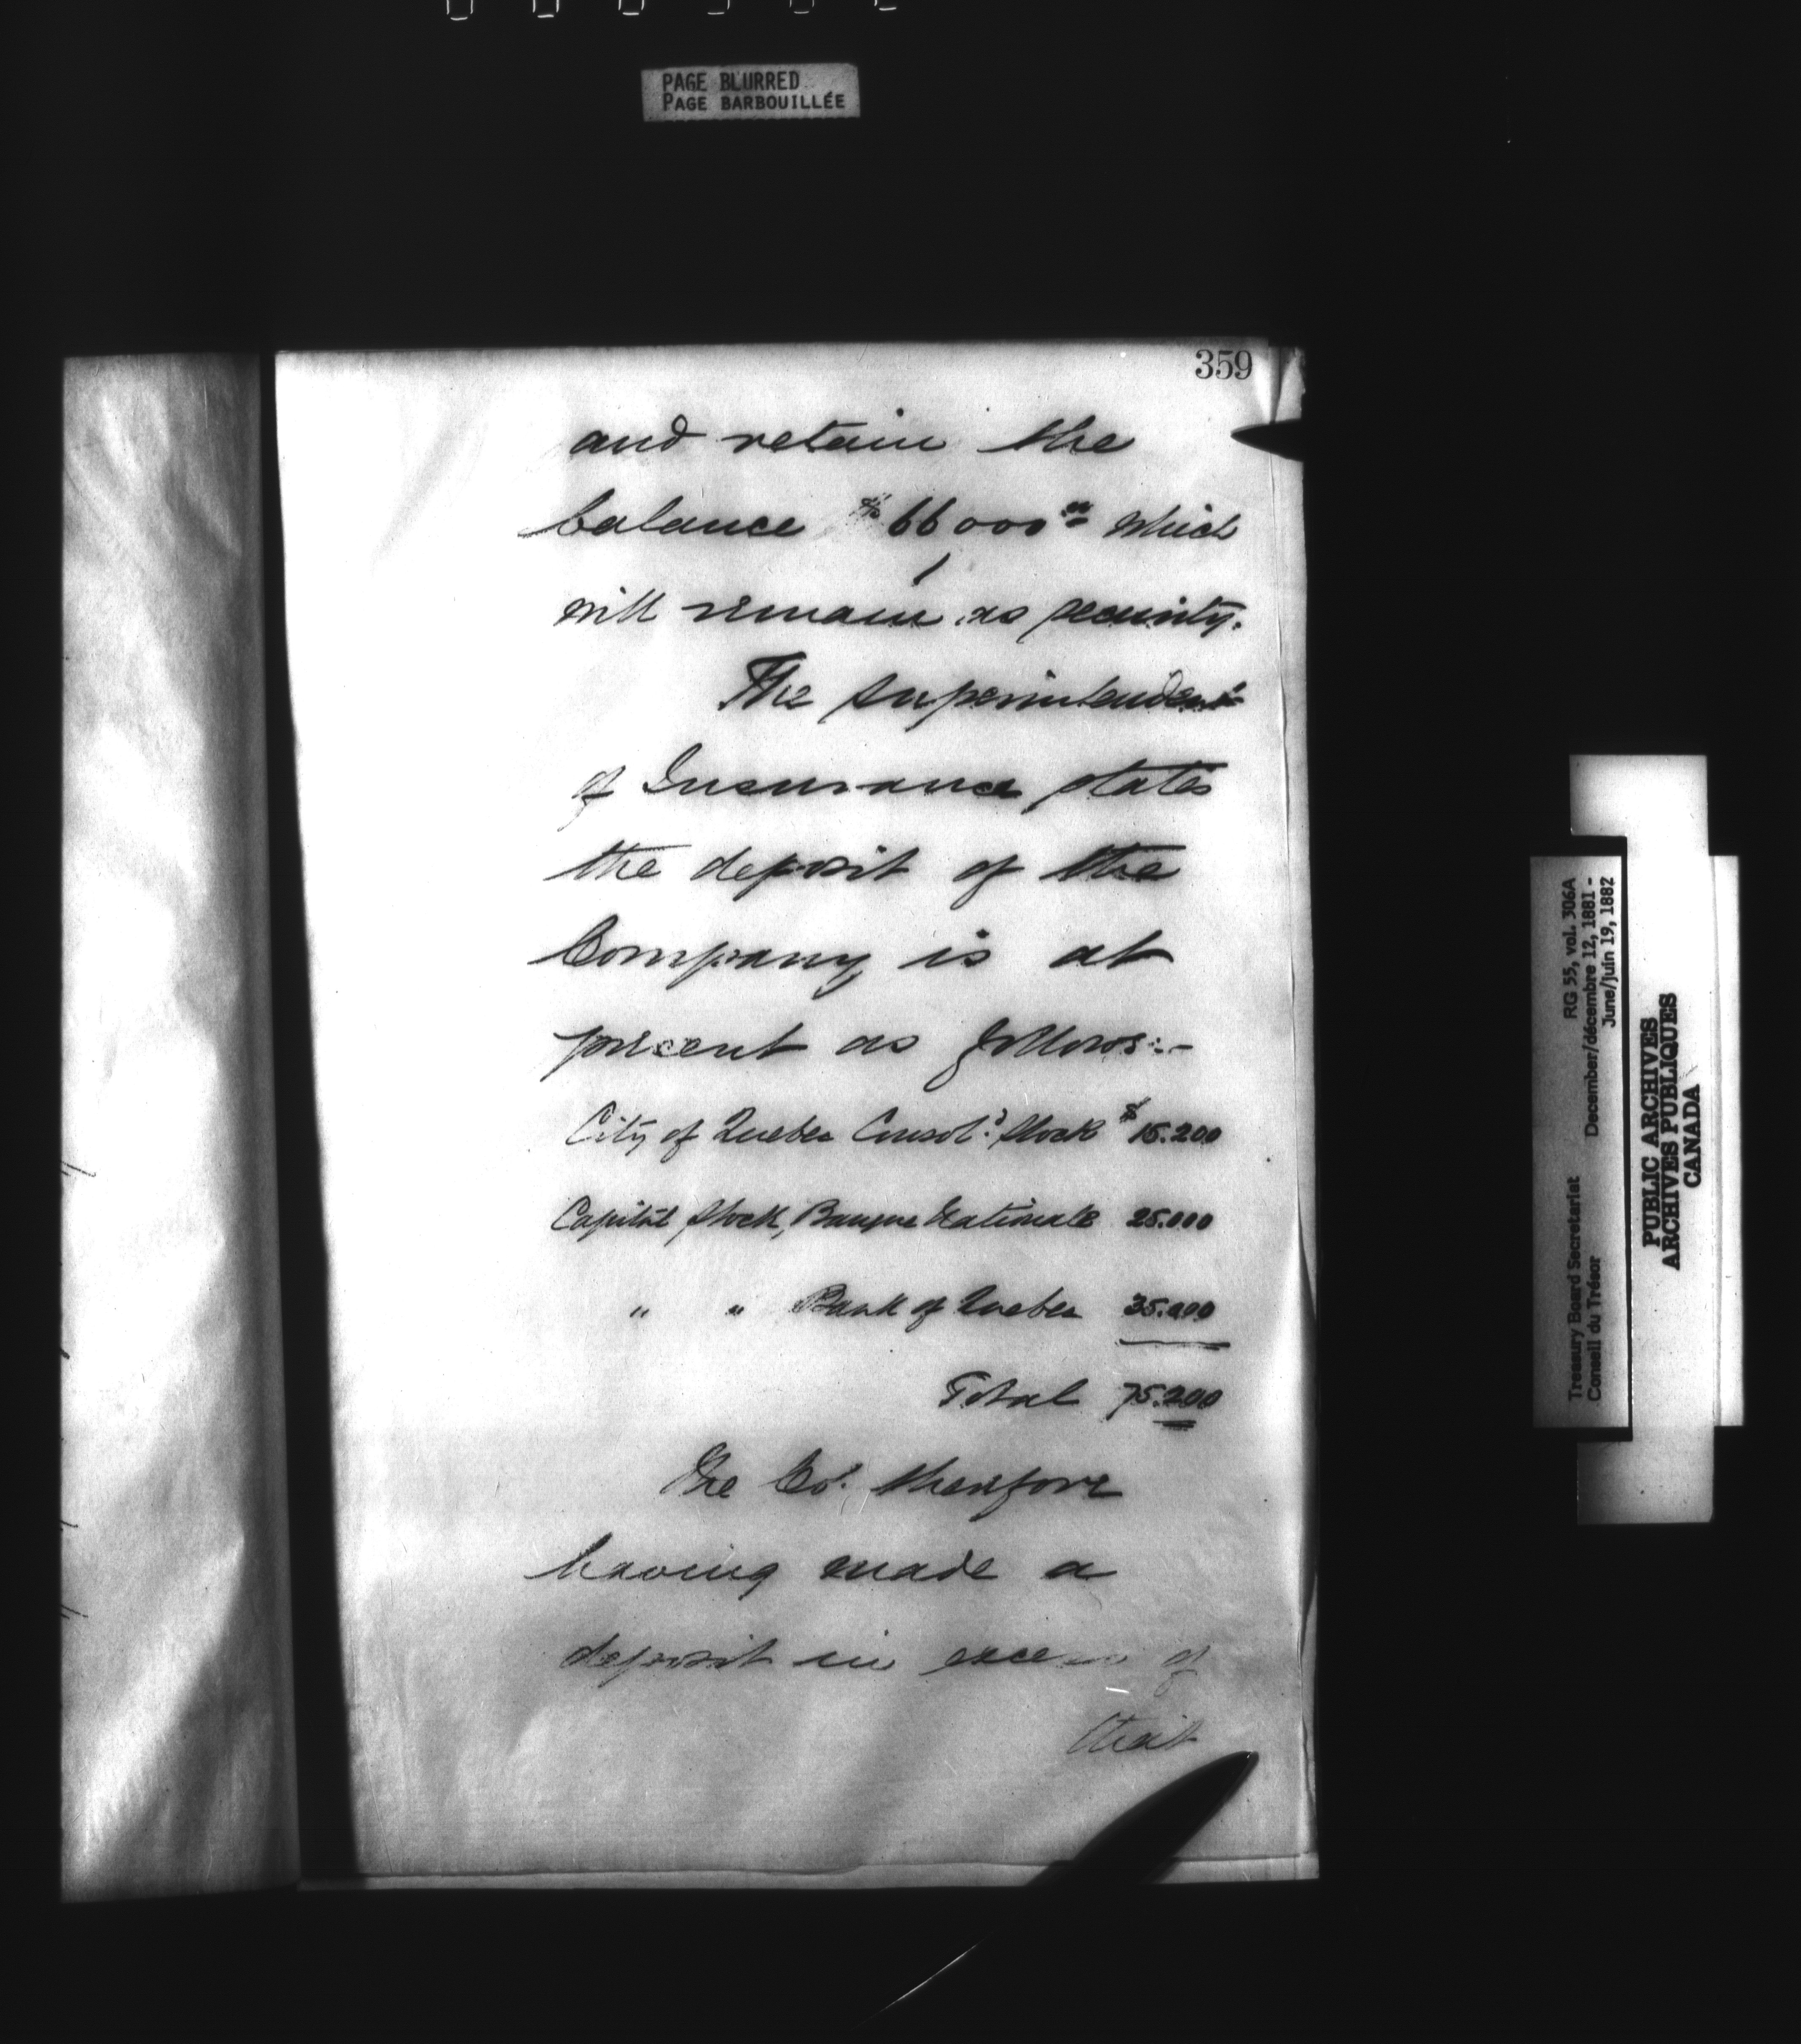 PAGE BLURRED
PAGE BARBOUILLÉE
359
and retain the
balance $66,000 00 which
will remain as security.
The Superintendent
of Insurance states
the deposit of the
Company is at
present as follows:-
City of Quebec Consol.d Stock $15.200
Capital Stock, Banque Nationale 25.000
" " Bank of Quebec 35.000
Total 75.200
The Co. therefore
having made a
deposit in excess of
that
Treasury Board Secretariat RG 55, vol. 306A
Conseil du Trésor December/décembre 12, 1881 -
June/juin 19, 1882
PUBLIC ARCHIVES
ARCHIVES PUBLIQUES
CANADA